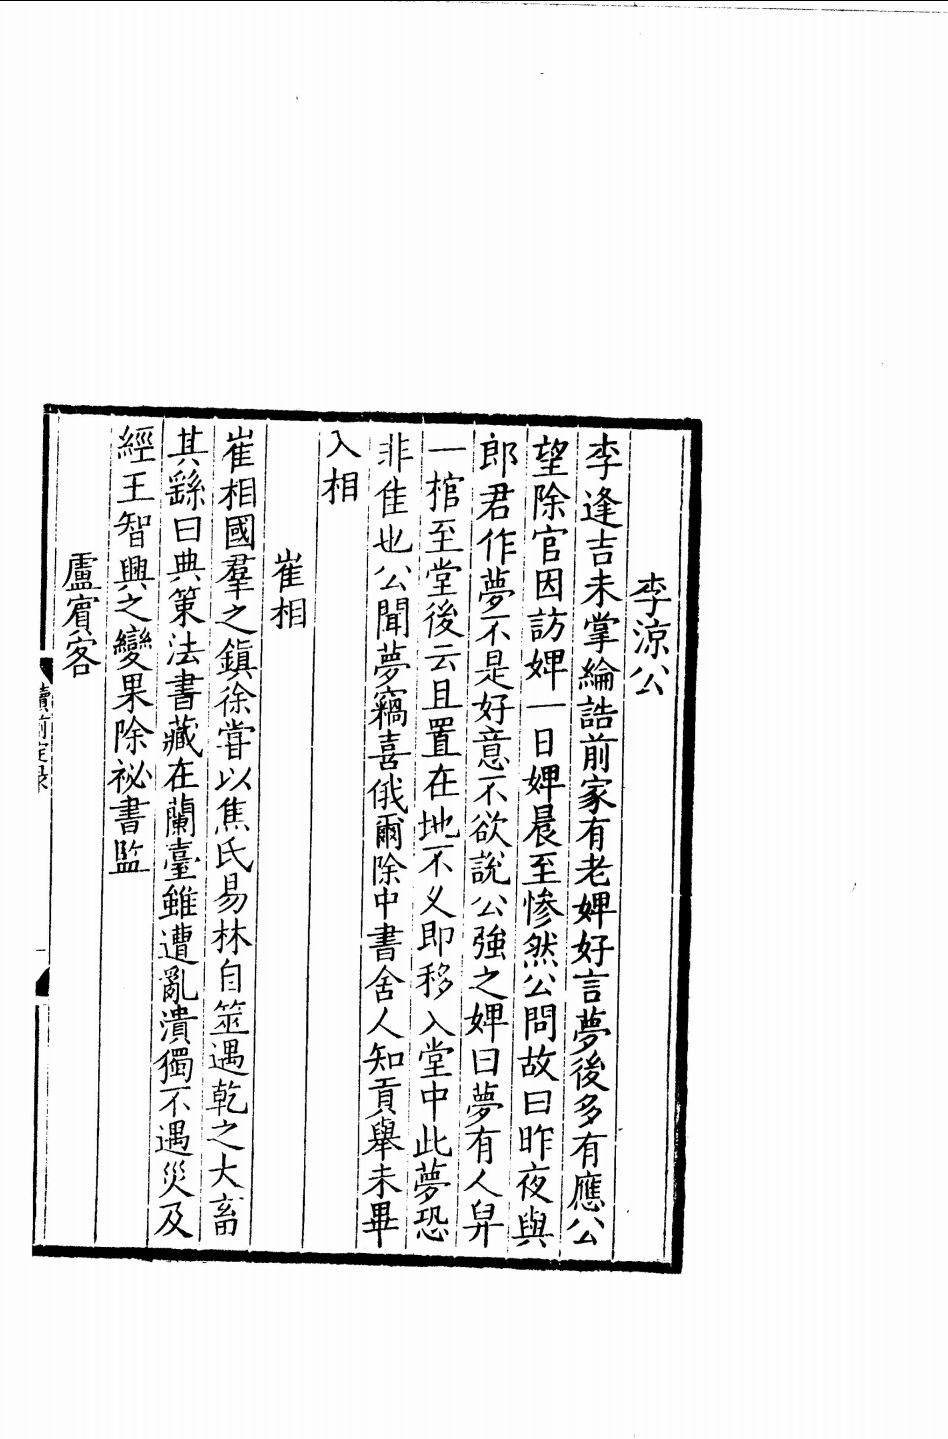 李涼公
李逢吉未掌綸誥前家有老婢好言夢後多有應公
望除官因訪婢一日婢晨至慘然公問故曰昨夜與
郎君作夢不是好意不欲說公強之婢曰夢有人舁
一棺至堂後云且置在地不乆即移入堂中此夢恐
非佳也公聞夢竊喜俄爾除中書舍人知貢舉未畢
入相
崔相
崔相國羣之鎮徐甞以焦氏易林自筮遇乾之大畜
其繇曰典策法書藏在蘭臺雖遭亂潰獨不遇災及
經王智興之變果除祕書監
盧賓客
續前定录
一